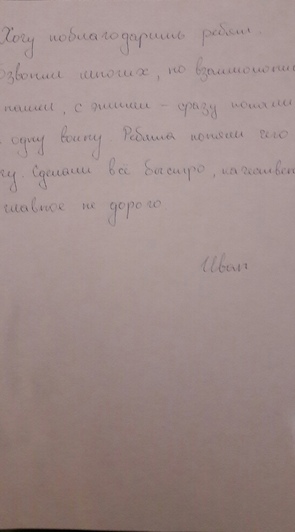 Хочу поблагодарить ребят.
бзвонил многих, но взаимопони
нашли, с этими – сразу попали
одну волну. Ребята поняли чего
чу. Сделали всё быстро, качествен
главное не дорого.
Иван